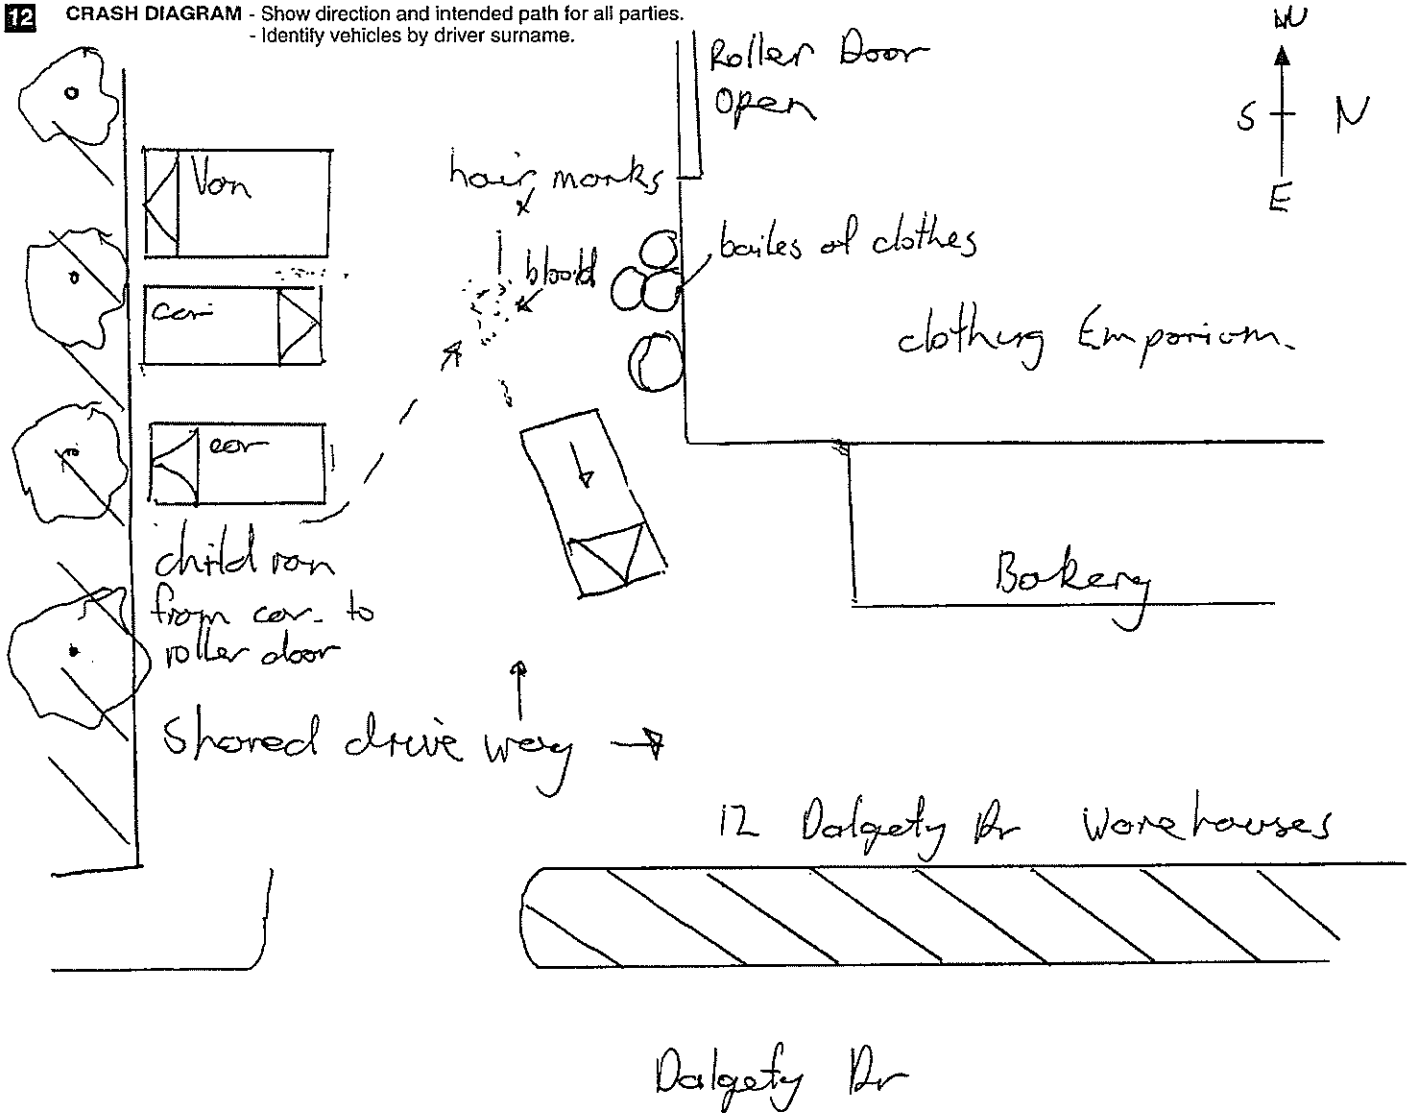 12 CRASH DIAGRAM - Show direction and intended path for all parties.
- Identify vehicles by driver surname.
W
S N
E
Roller Door
Open
Van
hair marks
x
bailes of clothes
blood
car
clothing Emporium.
car
child ran
from car to
roller door
Bakery
Shared drive way
12 Dalgety Dr Warehouses
Dalgety Dr